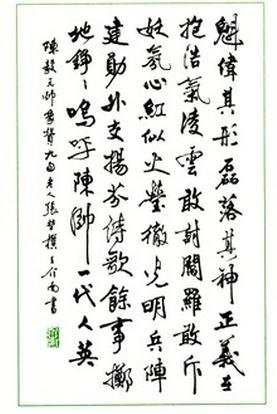 魁偉其形磊落其神正義在
抱浩氣凌雲敢討閻羅敢斥
妖氛心紅似火瑩徹光明兵陣
建勛外交揚芬詩歌餘事擲
地錚々嗚呼陳帥一代人英
陳毅元帥像贊九旬老人張撰書